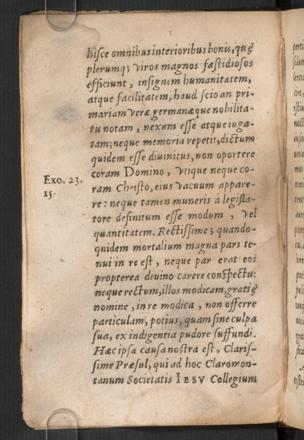 hisce omnibus interioribus bonis, quę
plerumq; viros magnos fastidiosos
efficiunt, insignem humanitatem,
atque facilitatem, haud scio an pri-
mariam verę germanæque nobilita-
tu notam, nexam esse atque iuga-
tam; neque memoria repetit, dictum
quidem esse diuinitus, non oportere
coram Domino, vtique neque co-
Exo. 23.
ram Christo, eius vacuum appare-
15.
re: neque tamen muneris à legisla-
tore definitum esse modum, vel
quantitatem. Rectissime; quando-
quidem mortalium magna pars te-
nui in re est, neque par erat eos
propterea diuino carere conspectu:
neque rectum, illos modicam, gratię
nomine, in re modica, non offerre
particulam; potius, quam sine culpa
sua, ex indigentia pudore suffundi.
Hæc ipsa causa nostra est, Claris-
sime Præsul, qui ad hoc Claromon-
tanum Societatis IESV Collegium